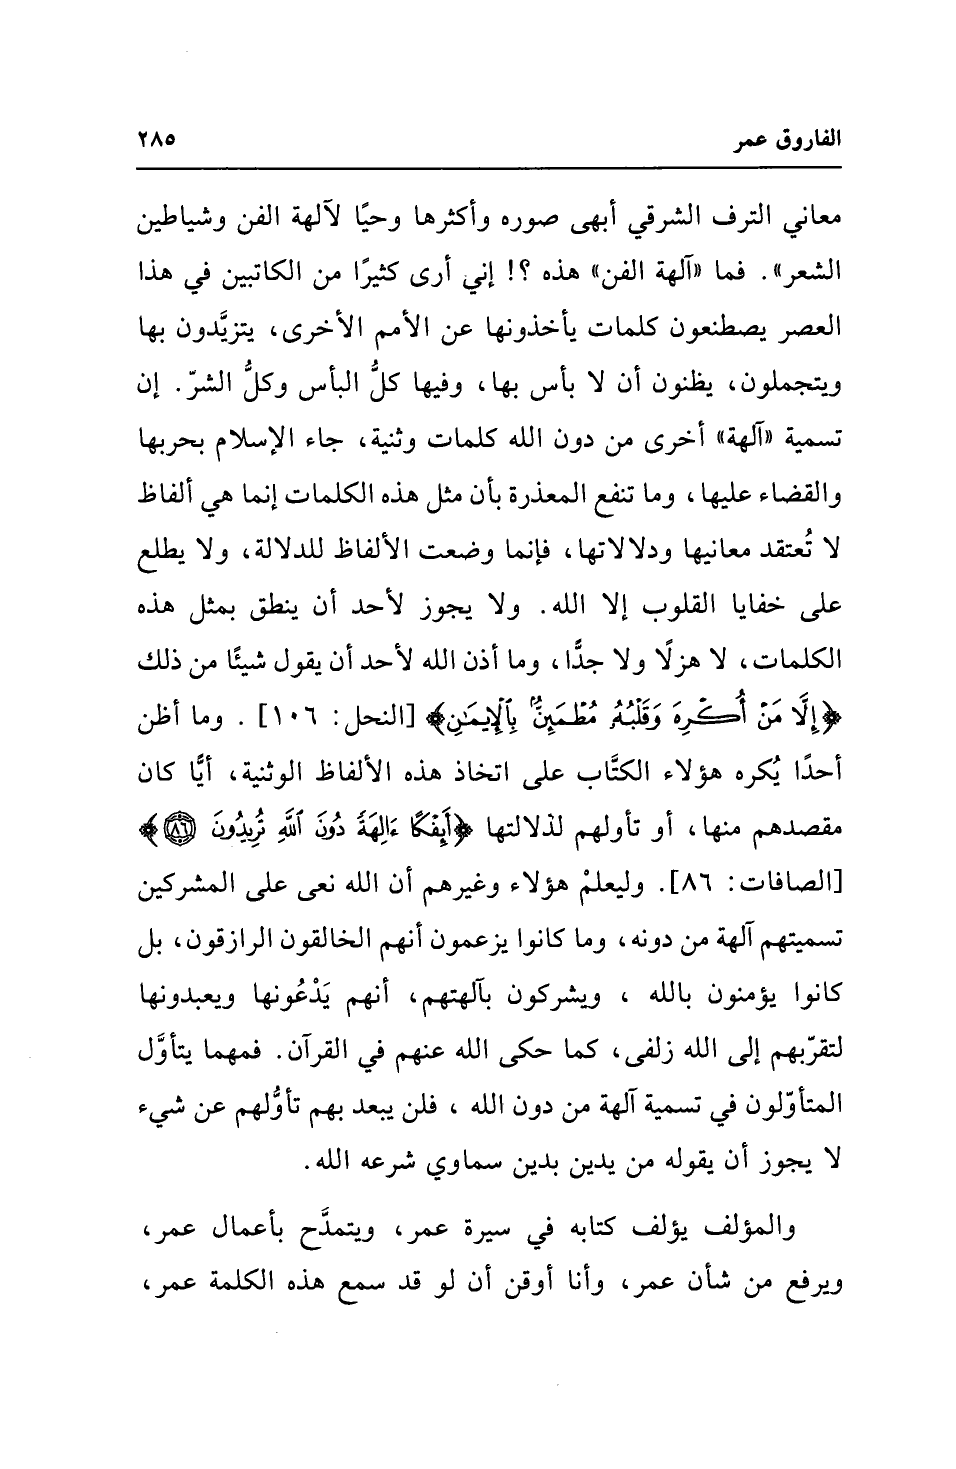 الفاروق عمر ٢٨٥
معاني الترف الشرقي أبهى صوره وأكثرها وحيًا لآلهة الفن وشياطين
الشعر». فما «آلهة الفن» هذه ؟! إني أرى كثيرًا من الكاتبين في هذا
العصر يصطنعون كلمات يأخذونها عن الأمم الأخرى، يتزيَّدون بها
ويتجملون، يظنون أن لا بأس بها، وفيها كلُّ البأس وكلُّ الشرّ. إن
تسمية «آلهة» أخرى من دون الله كلمات وثنية، جاء الإسلام بحربها
والقضاء عليها، وما تنفع المعذرة بأن مثل هذه الكلمات إنما هي ألفاظ
لا تُعتقد معانيها ودلالاتها، فإنما وضعت الألفاظ للدلالة، ولا يطلع
على خفايا القلوب إلا الله. ولا يجوز لأحد أن ينطق بمثل هذه
الكلمات، لا هزلًا ولا جدًّا، وما أذن الله لأحد أن يقول شيئًا من ذلك
﴿إِلَّا مَنْ أُكْرِهَ وَقَلْبُهُۥ مُطْمَئِنٌّۢ بِٱلْإِيمَٰنِ﴾ [النحل: ١٠٦] . وما أظن
أحدًا يُكره هؤلاء الكتَّاب على اتخاذ هذه الألفاظ الوثنية، أيًّا كان
مقصدهم منها، أو تأولهم لذلالتها ﴿أَئِفْكًا ءَالِهَةً دُونَ ٱللَّهِ تُرِيدُونَ ۝٨٦﴾
[الصافات: ٨٦]. وليعلمْ هؤلاء وغيرهم أن الله نعى على المشركين
تسميتهم آلهة من دونه، وما كانوا يزعمون أنهم الخالقون الرازقون، بل
كانوا يؤمنون بالله ، ويشركون بآلهتهم، أنهم يَدْعُونها ويعبدونها
لتقرّبهم إلى الله زلفى، كما حكى الله عنهم في القرآن. فمهما يتأوَّل
المتأوّلون في تسمية آلهة من دون الله ، فلن يبعد بهم تأوُّلهم عن شيء
لا يجوز أن يقوله من يدين بدين سماوي شرعه الله.
والمؤلف يؤلف كتابه في سيرة عمر، ويتمدَّح بأعمال عمر،
ويرفع من شأن عمر، وأنا أوقن أن لو قد سمع هذه الكلمة عمر،